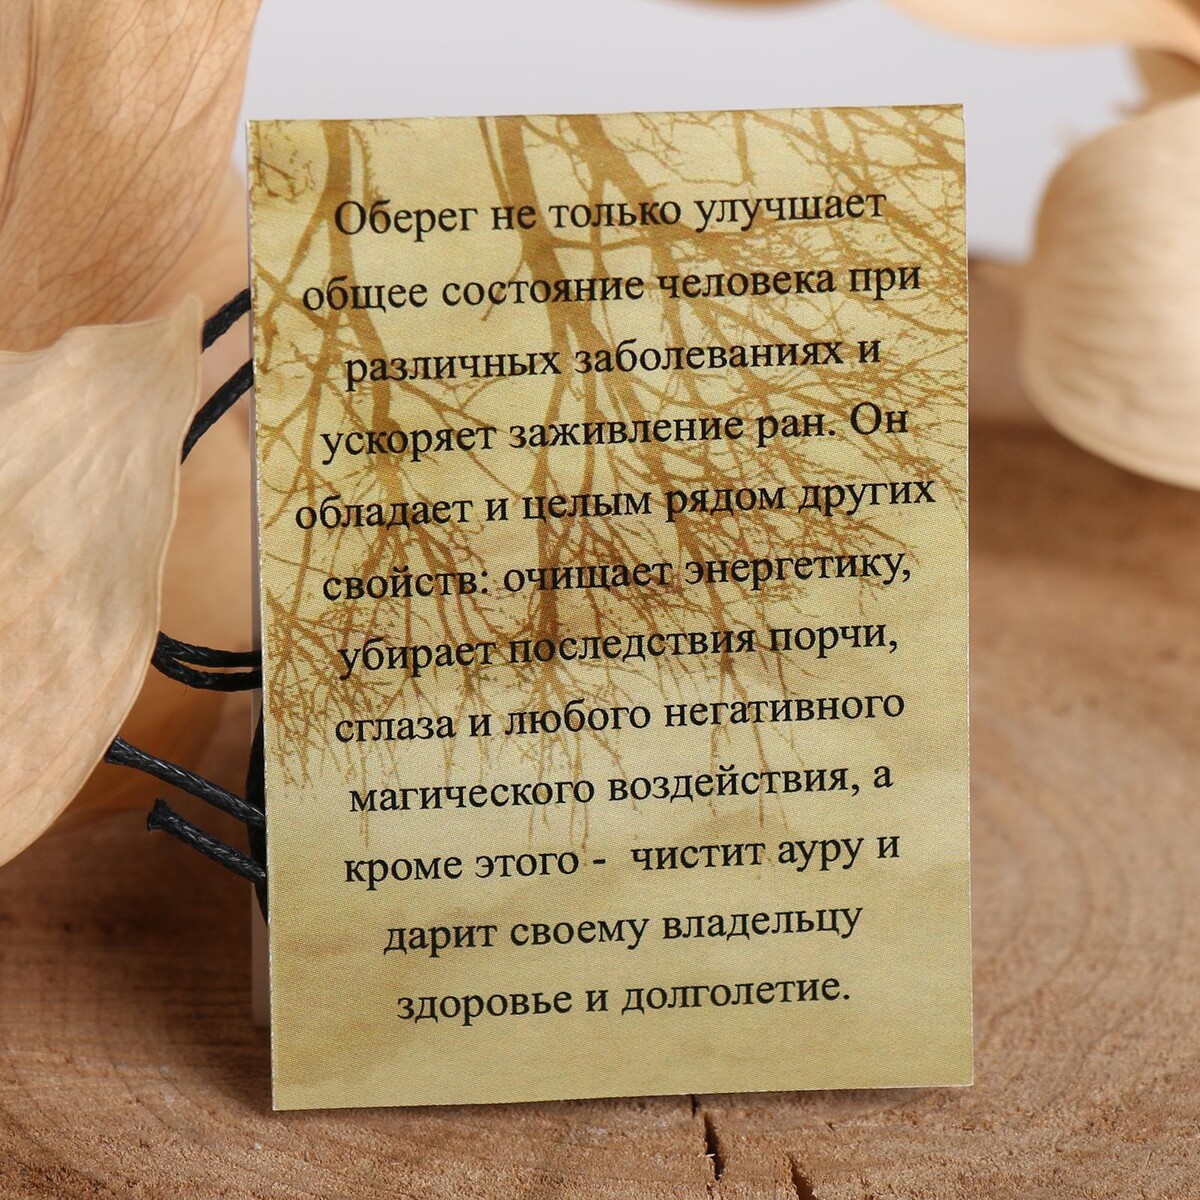 Оберег не только улучшает
общее состояние человека при
различных заболеваниях и
ускоряет заживление ран. Он
обладает и целым рядом других
свойств: очищает энергетику,
убирает последствия порчи,
сглаза и любого негативного
магического воздействия, а
кроме этого -  чистит ауру и
дарит своему владельцу
здоровье и долголетие.